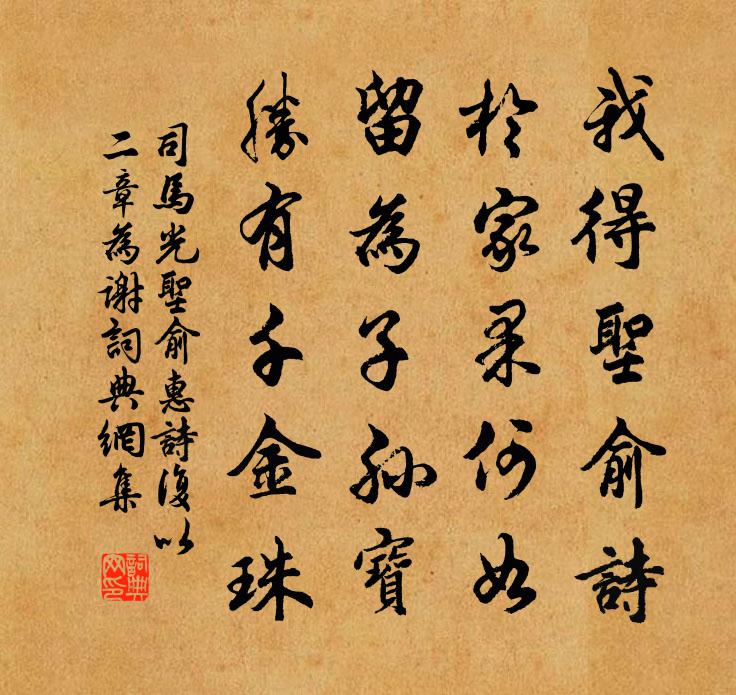 我得聖俞詩
於家果何如
留為子孫寶
勝有千金珠
司馬光聖俞惠詩復以
二章為謝詞典網集
詞典
网印